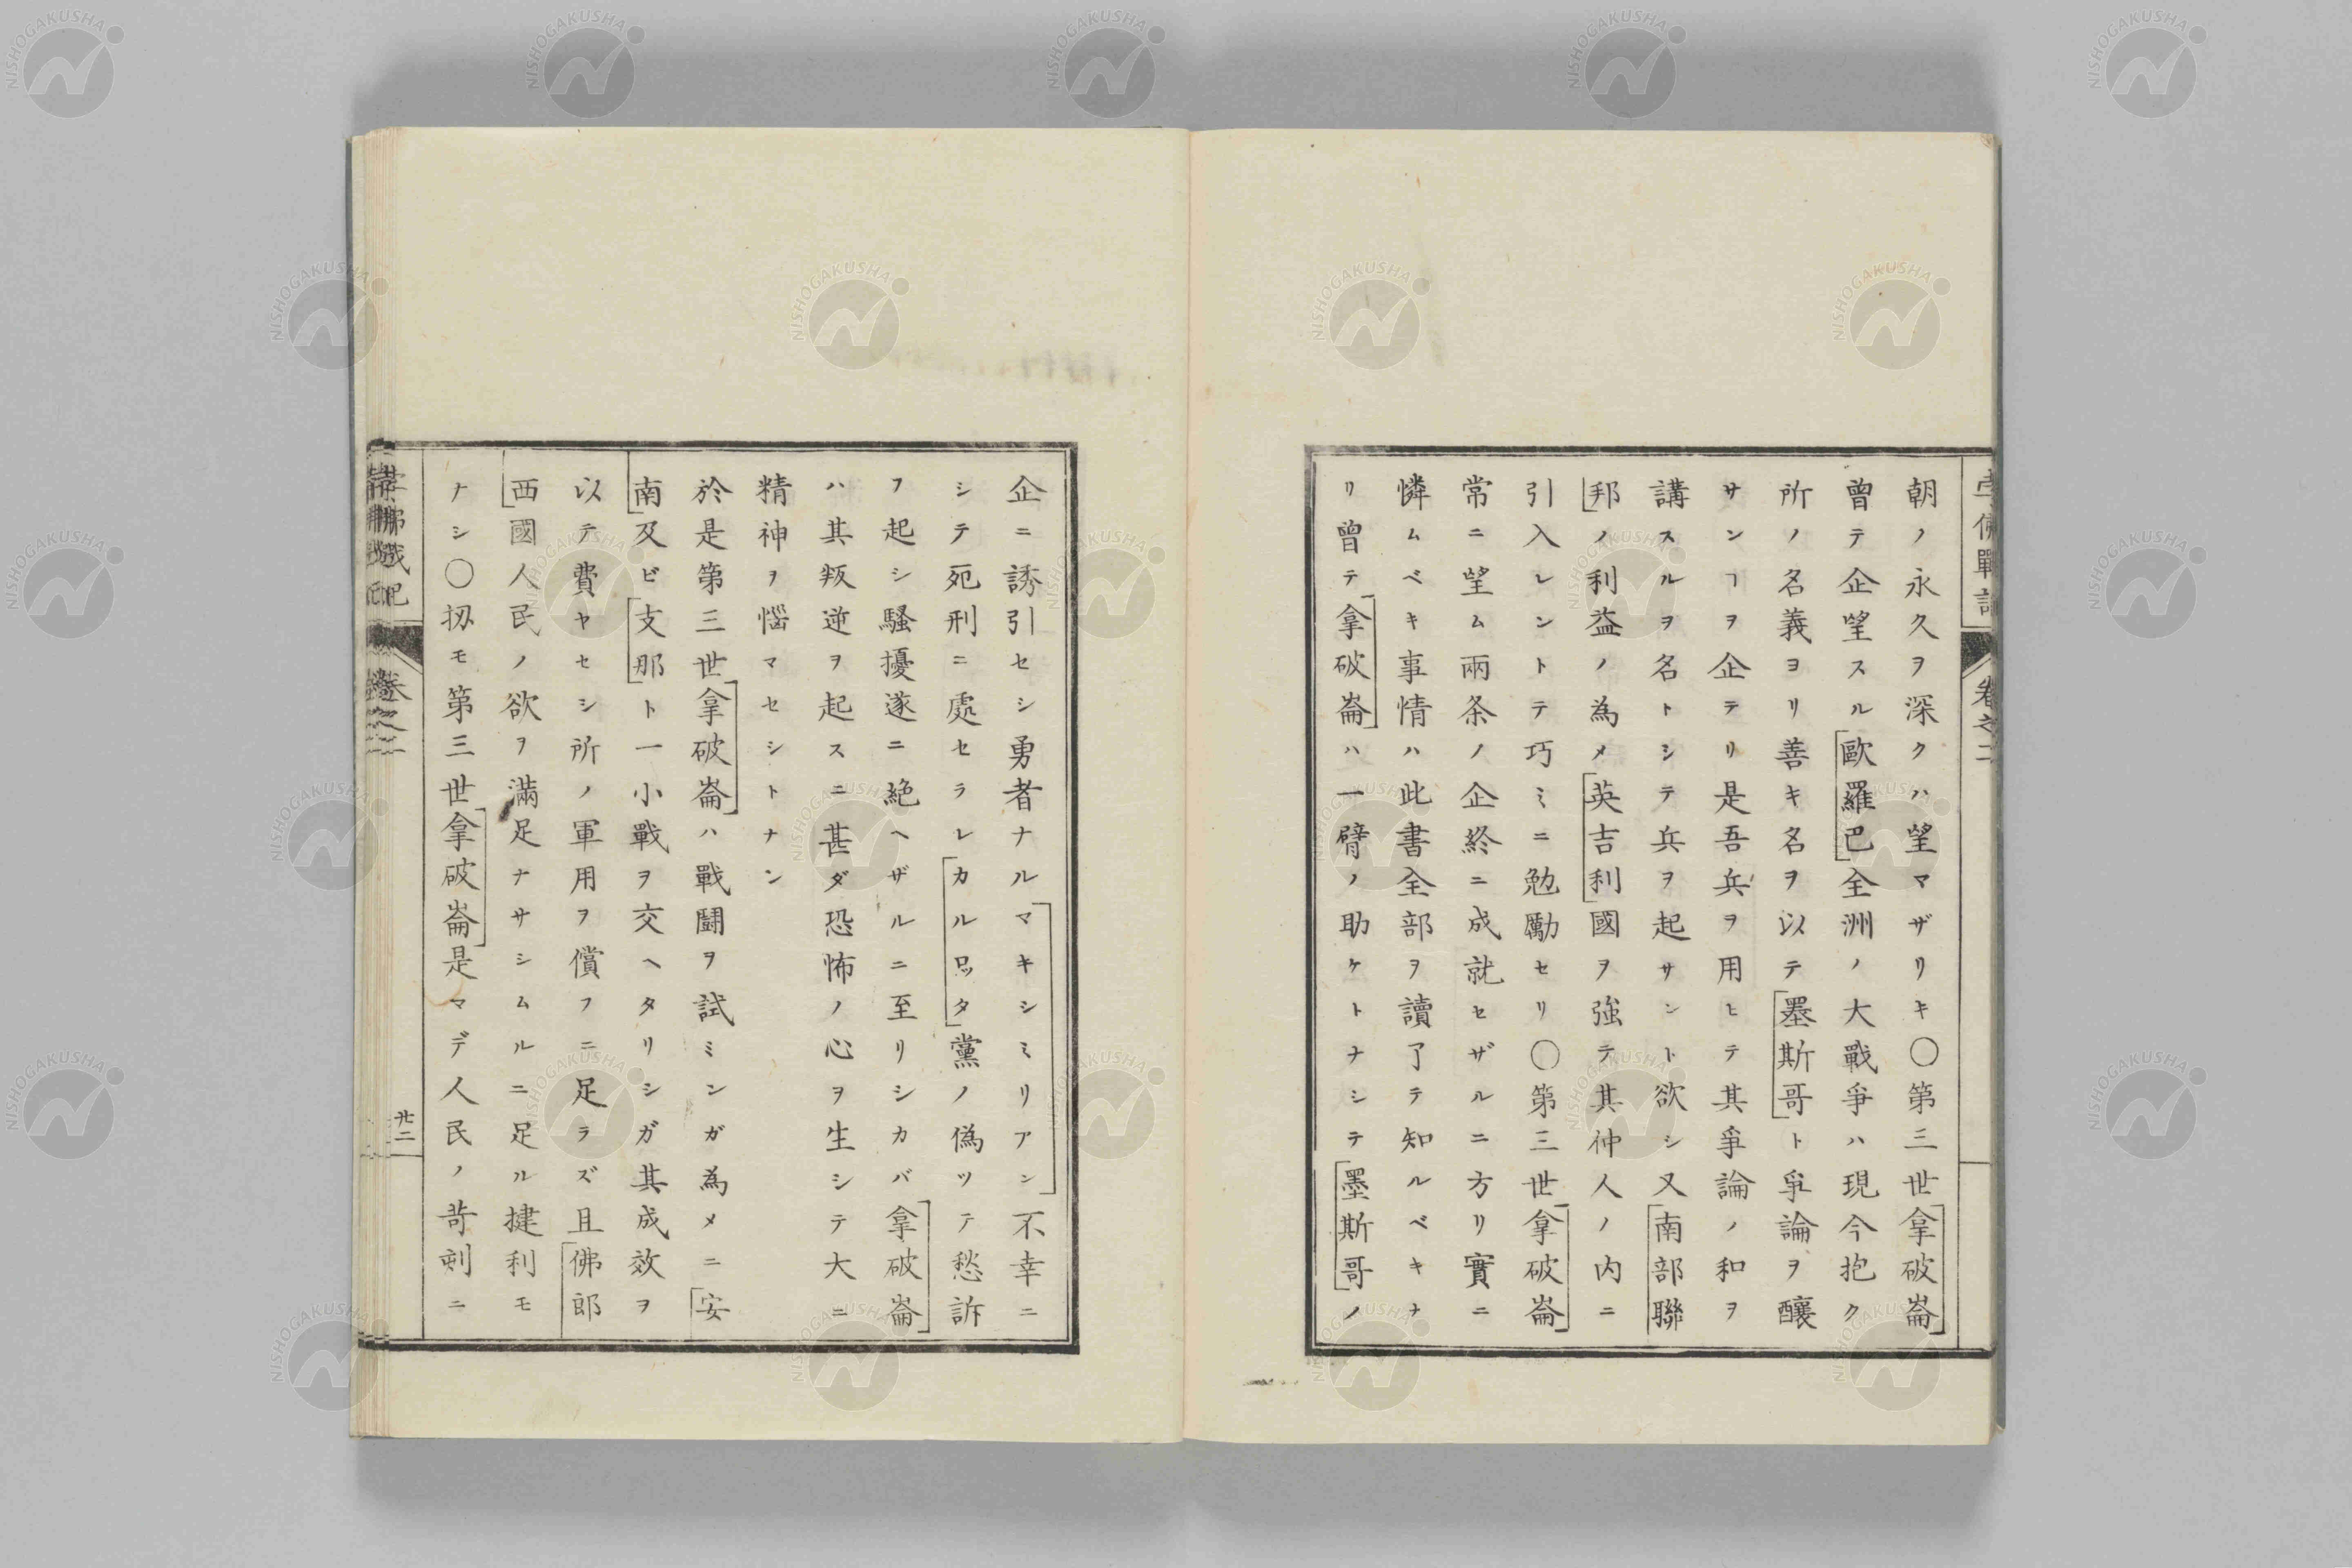 朝ノ永久ヲ深クハ望マザリキ〇第三世拿破崙
曾テ企望スル歐羅巴全洲ノ大戰爭ハ現今抱ク
所ノ名義ヨリ善キ名ヲ以テ墨斯哥ト爭論ヲ釀
サンヿヲ企テリ是吾兵ヲ用ヒテ其爭論ノ和ヲ
講スルヲ名トシテ兵ヲ起サント欲シ又南部聯
邦ノ利益ノ為メ英吉利國ヲ強テ其仲人ノ内ニ
引入レントテ巧ミニ勉勵セリ〇第三世拿破崙
常ニ望ム兩条ノ企終ニ成就セザルニ方リ實ニ
憐ムベキ事情ハ此書全部ヲ讀了テ知ルベキナ
リ曾テ拿破崙ハ一臂ノ助ケトナシテ墨斯哥ノ
企ニ誘引セシ勇者ナルマキシミリアン不幸ニ
シテ死刑ニ處セラレカルロッタ黨ノ偽ツテ愁訴
フ起シ騷擾遂ニ絶ヘザルニ至リシカバ拿破崙
ハ其叛逆ヲ起スニ甚ダ恐怖ノ心ヲ生シテ大ニ
精神ヲ惱マセシトナン
於是第三世拿破崙ハ戰鬪ヲ試ミンガ為メニ安
南及ビ支那ト一小戰ヲ交ヘタリシガ其成效ヲ
以テ費ヤセシ所ノ軍用ヲ償フニ足ラズ且佛郎
西國人民ノ欲ヲ滿足ナサシムルニ足ル捷利モ
ナシ〇扨モ第三世拿破崙是マデ人民ノ苛刻ニ
孛佛戰記
卷之二
廿二
NISHOGAKUSHA